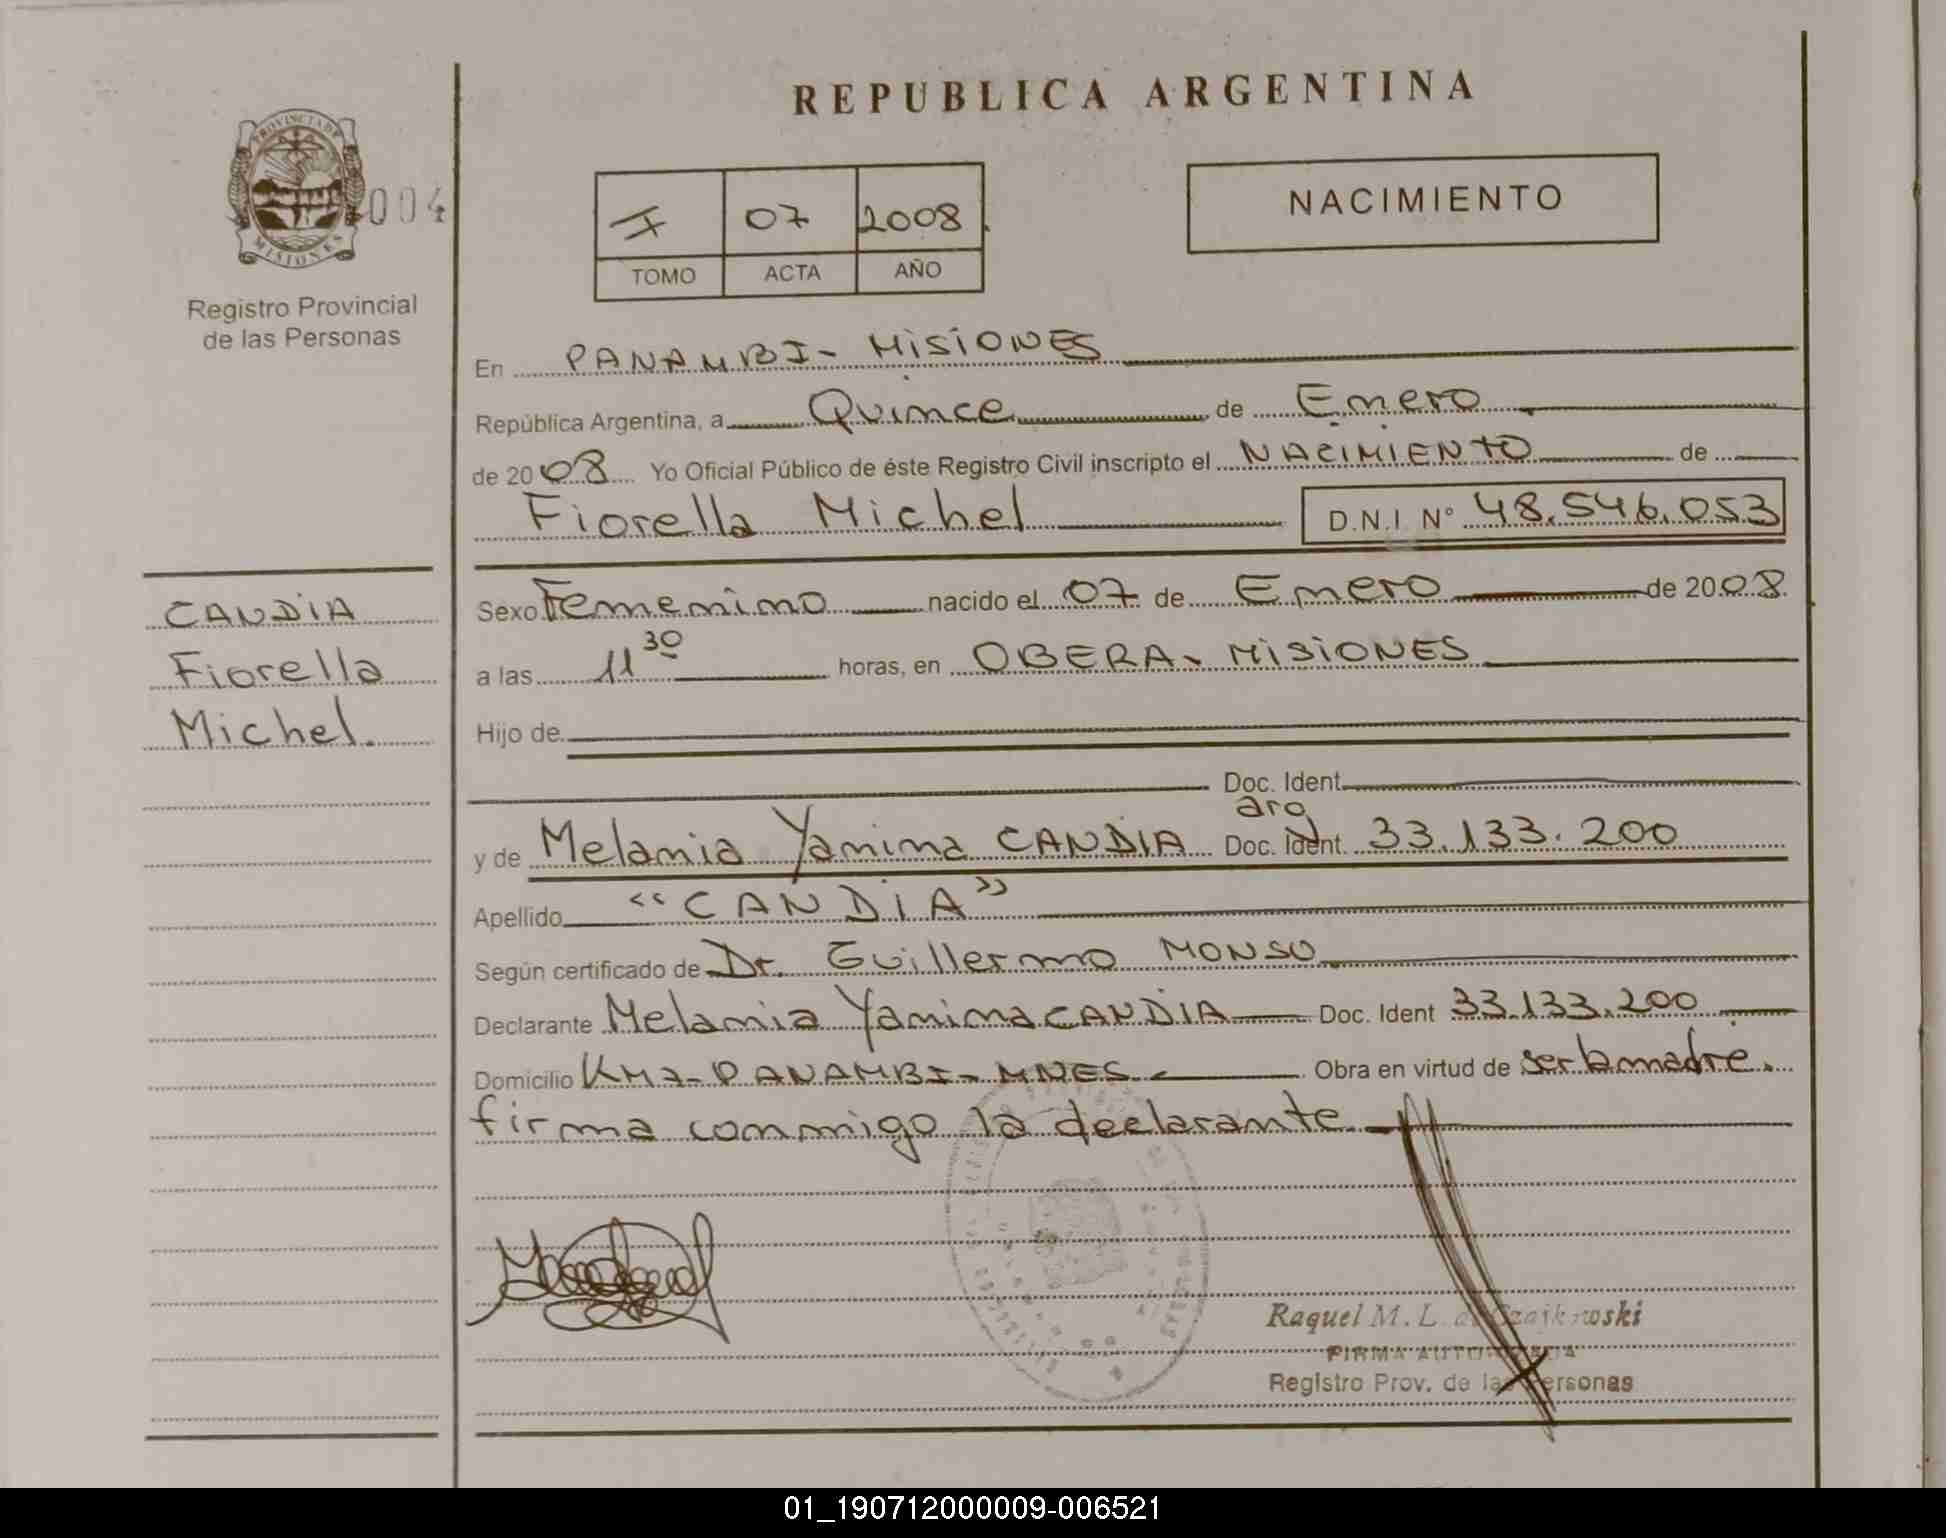 REPUBLICA ARGENTINA
PROVINCIA DE
MISIONES
004
Registro Provincial
de las Personas
I 07 2008
TOMO ACTA AÑO
NACIMIENTO
En PANAMBI - MISIONES
República Argentina, a Quince de Enero
de 2008 Yo Oficial Público de éste Registro Civil inscripto el NACIMIENTO de
Fiorella Michel D.N.I. N° 48.546.053
CANDIA
Fiorella
Michel.
Sexo Femenino nacido el 07 de Enero de 2008.
a las 11 30 horas, en OBERA - MISIONES
Hijo de
Doc. Ident.
arg
y de Melania Yanina CANDIA Doc. Ident. 33.133.200
Apellido "CANDIA"
Según certificado de Dr. Guillermo MONSO
Declarante Melania Yanina CANDIA Doc. Ident 33.133.200
Domicilio KM7 - PANAMBI - MNES - Obra en virtud de ser la madre.
firma conmigo la declarante
Raquel M. L. de Czajkowski
FIRMA AUTORIZADA
Registro Prov. de las Personas
01_190712000009-006521